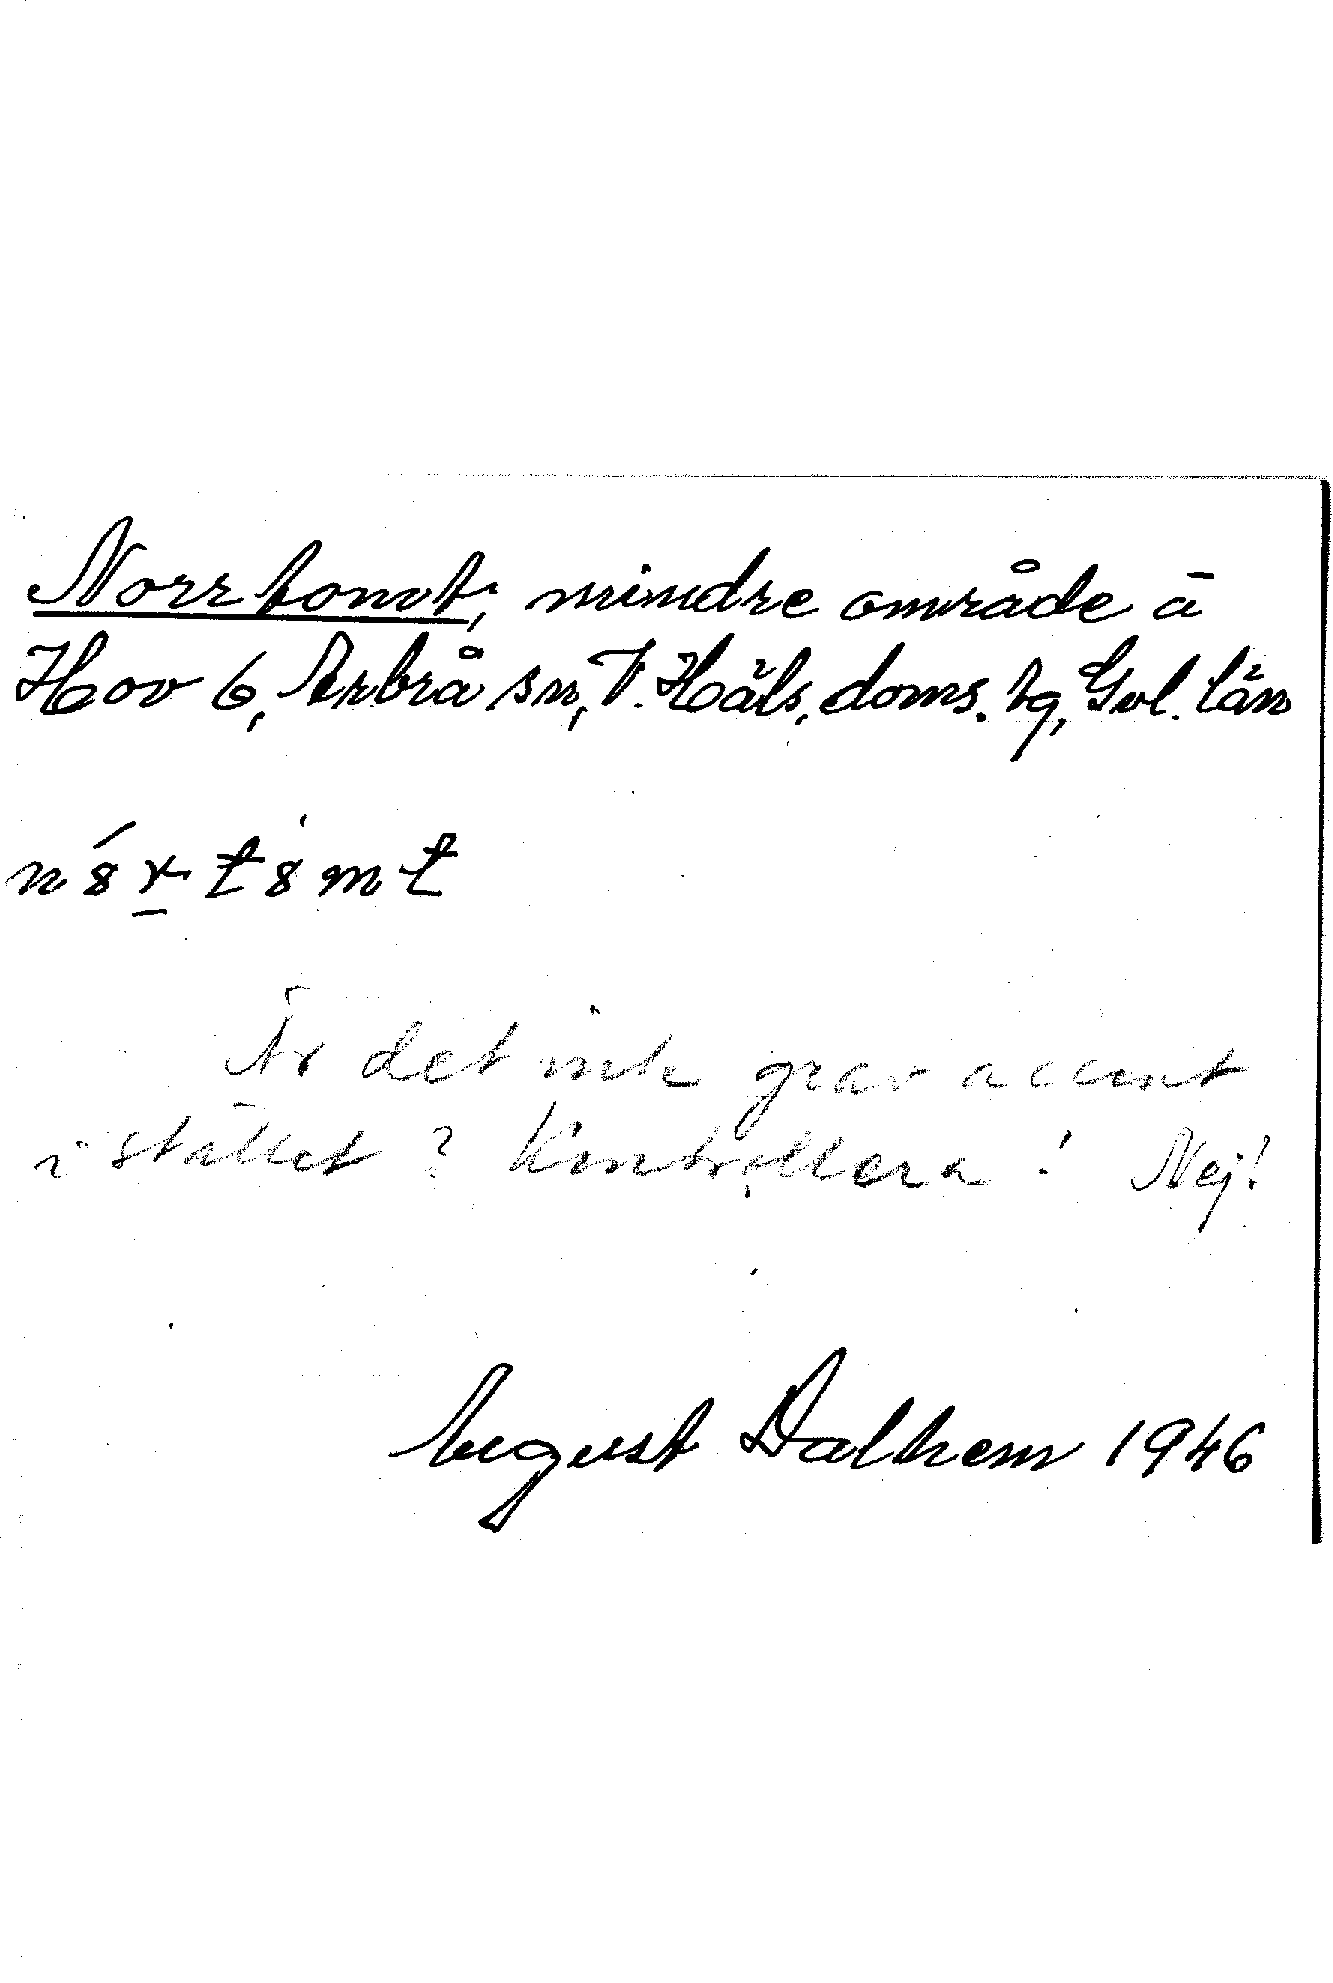 Norrtomt, mindre område å
Hov 6, Arbrå sn, V. Häls. doms. sg, Gvl. län
Är det inte grav accent
i stället? Kontrollera! Nej!
August Dalhem 1946